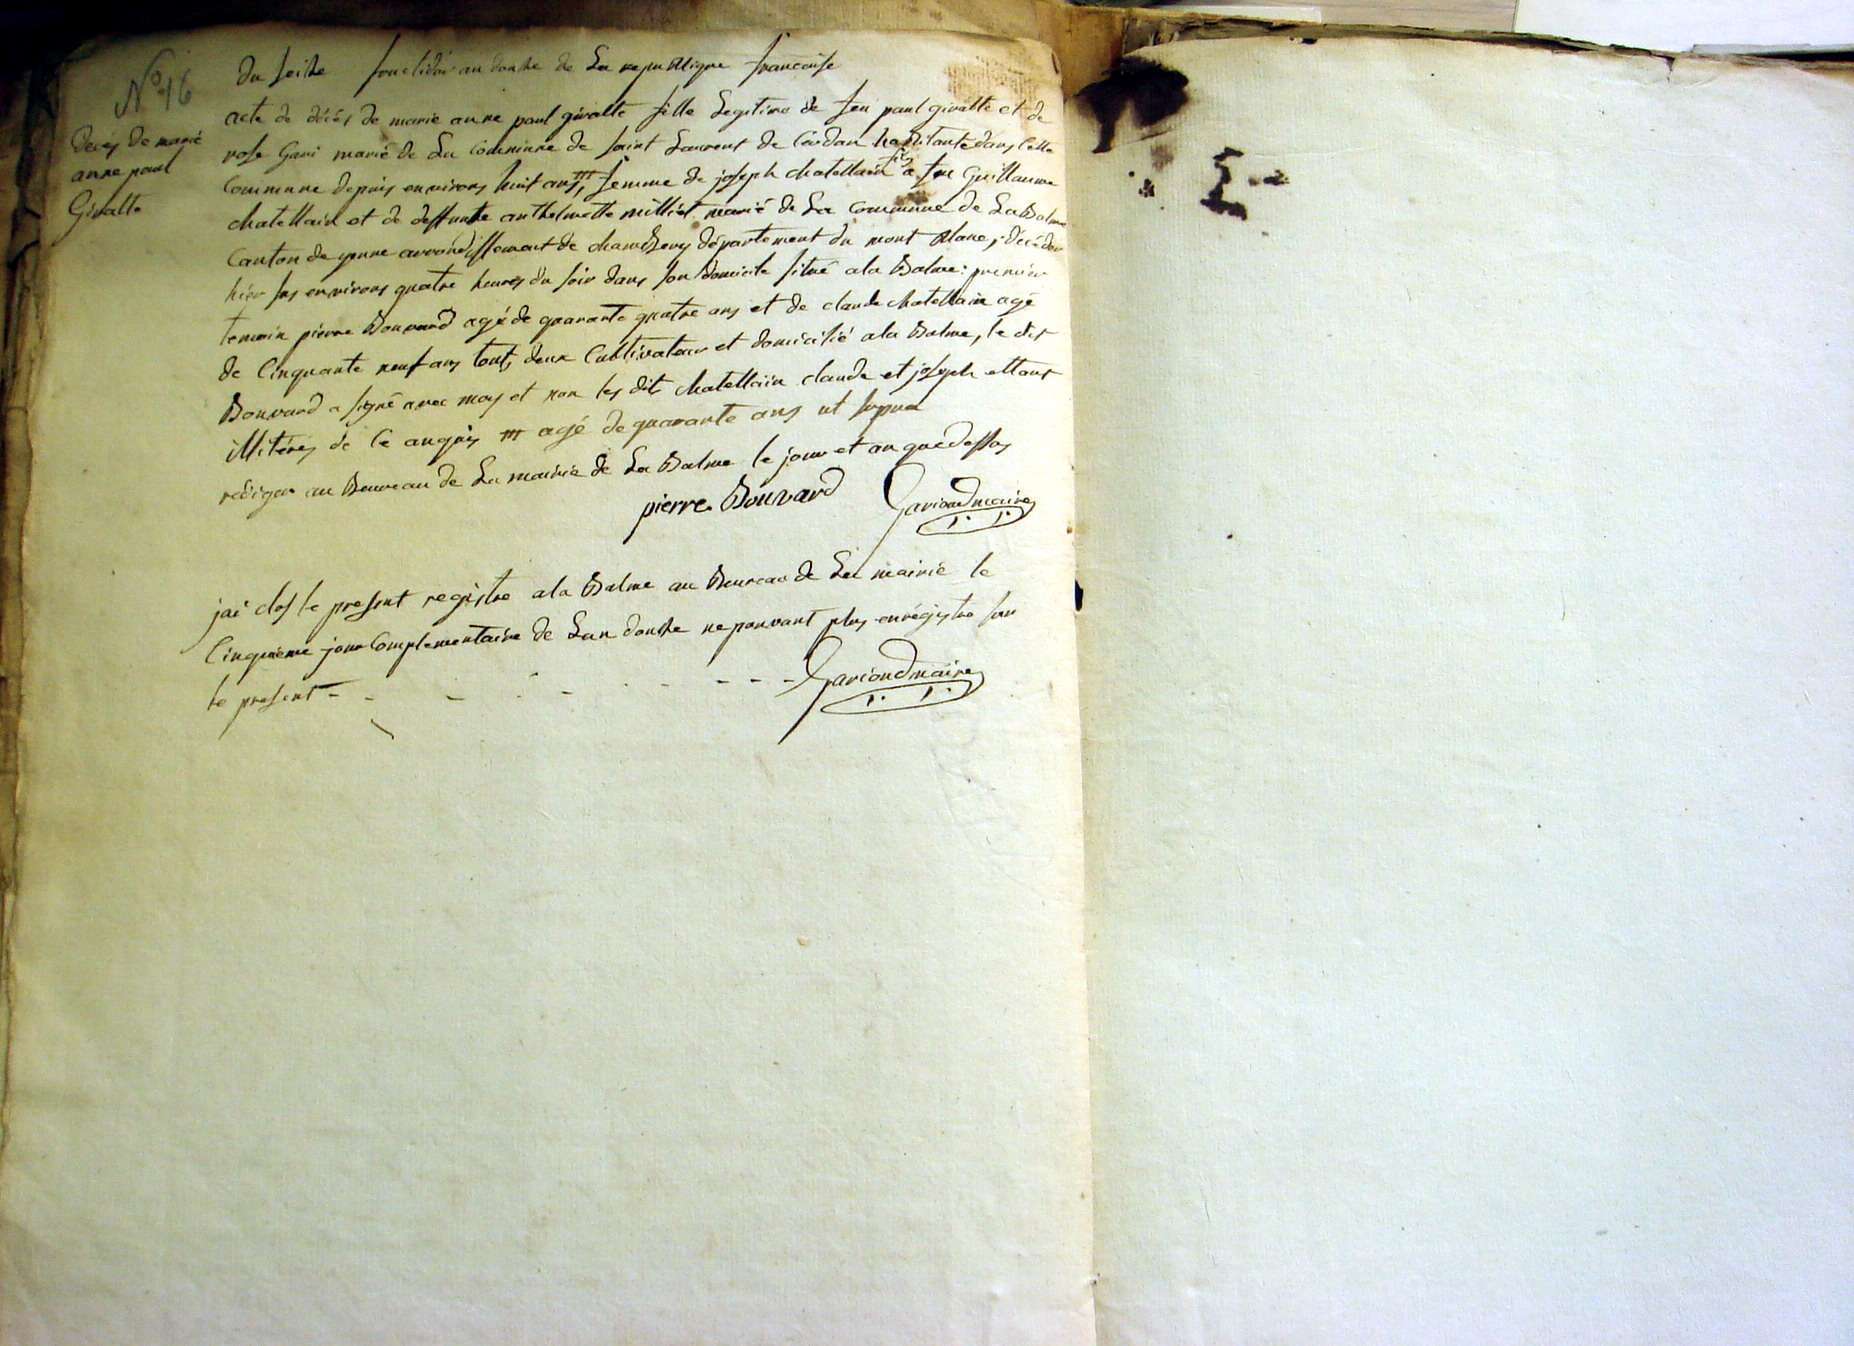 No 16
Décés de marie
anne paul
Givalte
du seithe fructidor an douthe de La republique francoise
acte de décés de marie anne paul givalte fille Legitime de feu paul givalte et de
rose Gari marié de La Commune de saint Laurent de habitante dans Cette
Commune depuis environs huit ans, femme de joseph Chatellain fils a feu Guillaume
Chatellain et de deffunte anthelmette milliet marié de La Commune de La Balme
Canton de yenne arrondissement de chambery département du mont Blanc, décédée
hier sus environs quatre heures du soir dans son domicile situé ala Balme: premier
temoin pierre Bouvard agé de quarante quatre ans et de claude Chatellain agé
de Cinquante neuf ans tout deux Cultivateur et domicilié ala Balme, le dit
Bouvard a signé avec moy et non les dit Chatellain claude et joseph ettant
illiterés de ce anquis m agé de quarante ans ut supra
rediger au Beureau de La mairie de La Balme le jour et an que dessus
pierre Bouvard Garioud maire
jai clos le present registre ala Balme au Beureau de La mairie le
Cinquieme jour Complementaire de Lan douthe ne pouvant plus enrégistre sur
le present - - - - - - - - Garioud maire